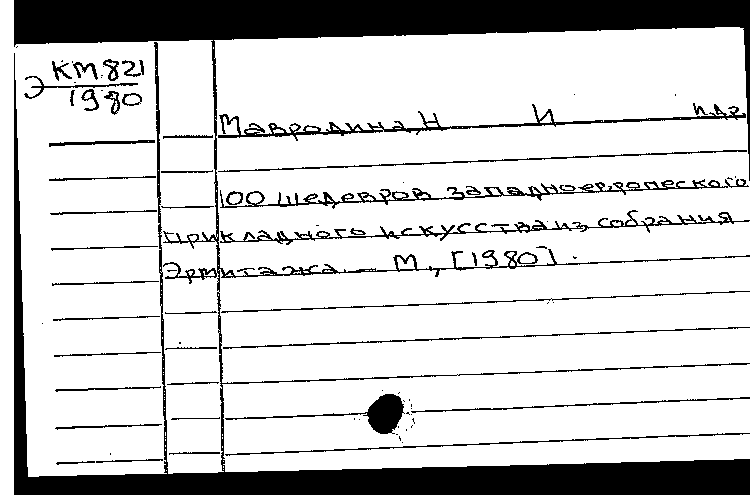 Э КМ.821
1980
Мавродина, Н И и др
100 шедевров западноевропеского
прикладного искусства из собрания
Эрмитажа. — М., [1980].